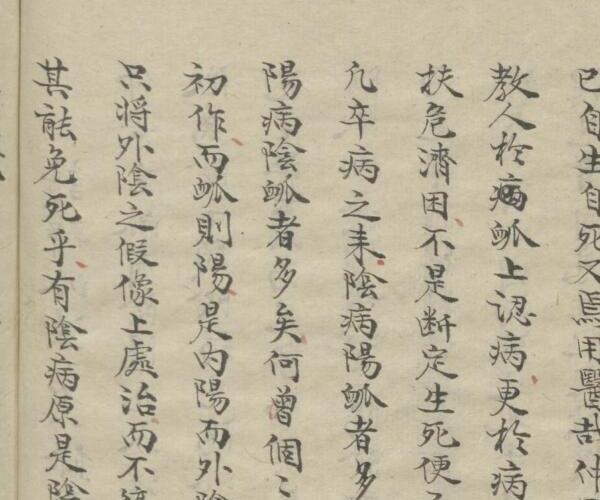 已自生自死又焉用醫哉仲
教人於病脈上認病更於病
扶危濟困不是断定生死便
凢卒病之耒陰病陽脈者多
陽病陰脈者多矣何曾個〻
初作而脈則陽是内陽而外陰
只将外陰之假像上處治而不
其能免死乎有陰病原是陰